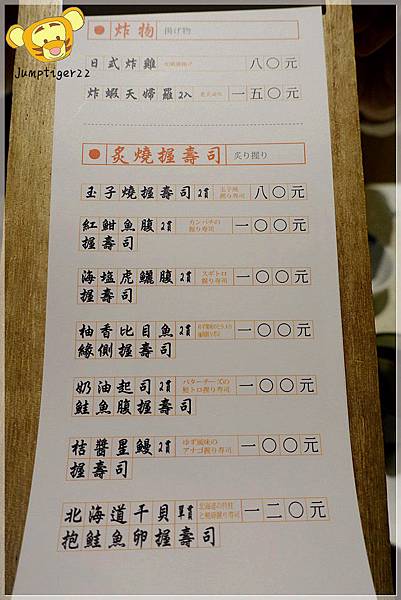 Jumptiger22
炸物 揚げ物
日式炸雞 八〇元
炸蝦天婦羅2入 一五〇元
炙燒握壽司 炙り握り
玉子燒握壽司2貫 玉子焼 握り寿司 八〇元
紅魽魚腹2貫 カンパチの 一〇〇元
握壽司 握り寿司
海塩虎鱺腹2貫 スギトロ 一〇〇元
握壽司 握り寿司
柚香比目魚2貫 一〇〇元
緣側握壽司
奶油起司2貫 バターチーズの 一〇〇元
鮭魚腹握壽司 鮭トロ握り寿司
桔醬星鰻2貫 ゆず風味の 一〇〇元
握壽司 アナゴ握り寿司
北海道干貝單貫 北海道の貝柱 一二〇元
抱鮭魚卵握壽司